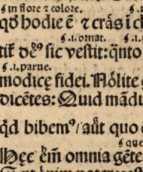 in flore ⁊ colore.
qđ hodie ē ⁊ cras i c
.i. ornat.
tiſ deꝰ sic vestit: qnto
.i. parue.
modice fidei. Nolite
dicētes: Quid mādu
qd bibemꝰ/ aut quo
que
Hec em omnia gēte